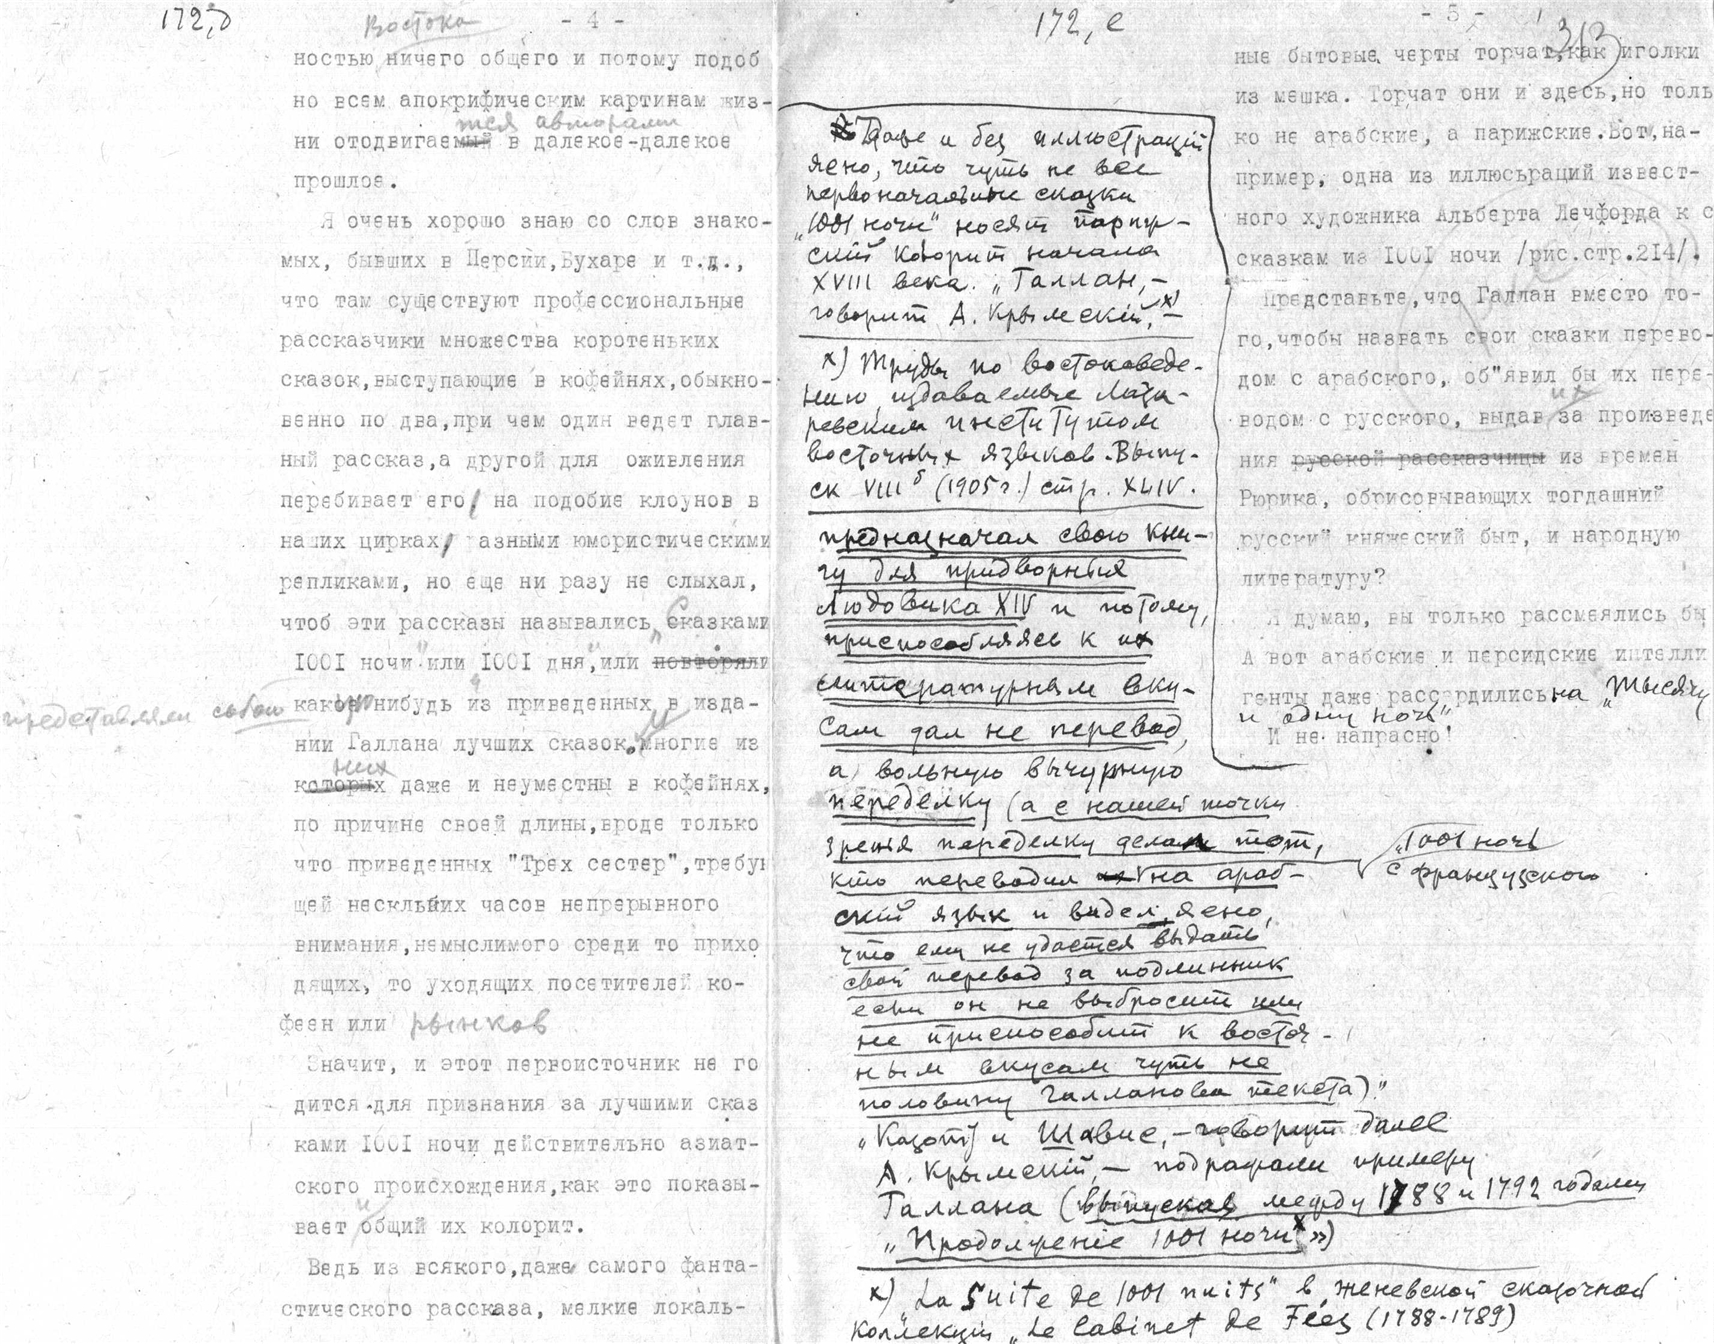 172,д
Востока
- 4 -
ностью ничего общего и потому подоб
но всем апокрифическим картинам жиз-
тся авторами
ни отодвигаемый в далекое-далекое
прошлое.
Я очень хорошо знаю со слов знако-
мых, бывших в Персии,Бухаре и т.д.,
что там существуют профессиональные
рассказчики множества коротеньких
сказок,выступающие в кофейнях,обыкно-
венно по два,при чем один ведет глав-
ный рассказ,а другой для оживления
перебивает его/ на подобие клоунов в
наших цирках/ азными юмористическими
репликами, но еще ни разу не слыхал,
чтоб эти рассказы назывались „Сказками
1001 ночи" или 1001 дня", или повторяли
представляли собою
какою нибудь из приведенных в изда-
нии Галлана лучших сказок. Многие из
них
которых даже и неуместны в кофейнях,
по причине своей длины,вроде только
что приведенных "Трех сестер",требую
щей нескльких часов непрерывного
внимания,немыслимого среди то прихо
дящих, то уходящих посетителей ко-
феен или рынков
Значит, и этот первоисточник не го
дится для признания за лучшими сказ
ками 1001 ночи действительно азиат-
ского происхождения,как это показы-
и
вает общий их колорит.
Ведь из всякого,даже самого фанта-
стического рассказа, мелкие локаль-
172, е
Даже и без иллюстраций
ясно, что чуть не все
первоначальные сказки
„1001 ночи" носят париж-
ский колорит начала
XVIII века. „Галлан,-
говорит А. Крымский,х) -
х) Труды по востоковеде-
нию, издаваемые Лаза-
ревским институтом
восточных языков. Выпу-
ск VIII⁵ (1905 г.) стр. XLIV.
предназначал свою кни-
гу для придворных
Людовика XIV и потому,
приспособляясь к их
литературным вку-
сам дал не перевод,
а вольную вычурную
переделку (а с нашей точки
зрения переделку делал тот,
кто переводил на араб-
„1001 ночь
с французского
ский язык и видел, ясно,
что ему не удастся выдать
свой перевод за подлинник
если он не выбросит или
не приспособит к восточ-
ным вкусам чуть не
половину Галланова текста)."
„Казотт и Шавис, - говорит далее
А. Крымский, - подражали примеру
Галлана (выпускав между 1788 и 1792 годами
„Продолжение 1001 ночи х »)
х) „La Suite de 1001 nuits" в женевской сказочной
коллекции „Le Cabinet de Fées (1788-1789)
- 5 -
313
ные бытовые черты торчат,как иголки
из мешка. Торчат они и здесь,но толь
ко не арабские, а парижские.Вот,на-
пример, одна из иллюсьраций извест-
ного художника Альберта Лечфорда к с
сказкам из 1001 ночи /рис.стр.214/.
Представьте,что Галлан вместо то-
го,чтобы назвать свои сказки перево-
дом с арабского, об"явил бы их пере-
их
водом с русского, выдав за произведе
ния русской рассказчицы из времен
Рюрика, обрисовывающих тогдашний
русский княжеский быт, и народную
литературу?
Я думаю, вы только рассмеялись бы
А вот арабские и персидские интелли
генты даже рассердились на „Тысячу
и одну ночь".
И не напрасно!